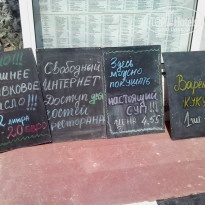 !!!
ивковое
сло!!!
2 литра
20 евро
Свободный
интернет
Доступ для
гостей
ресторана
Здесь
можно
покушать
настоящий
суп!!!
цена 4,55
Варен
куку
1 шт